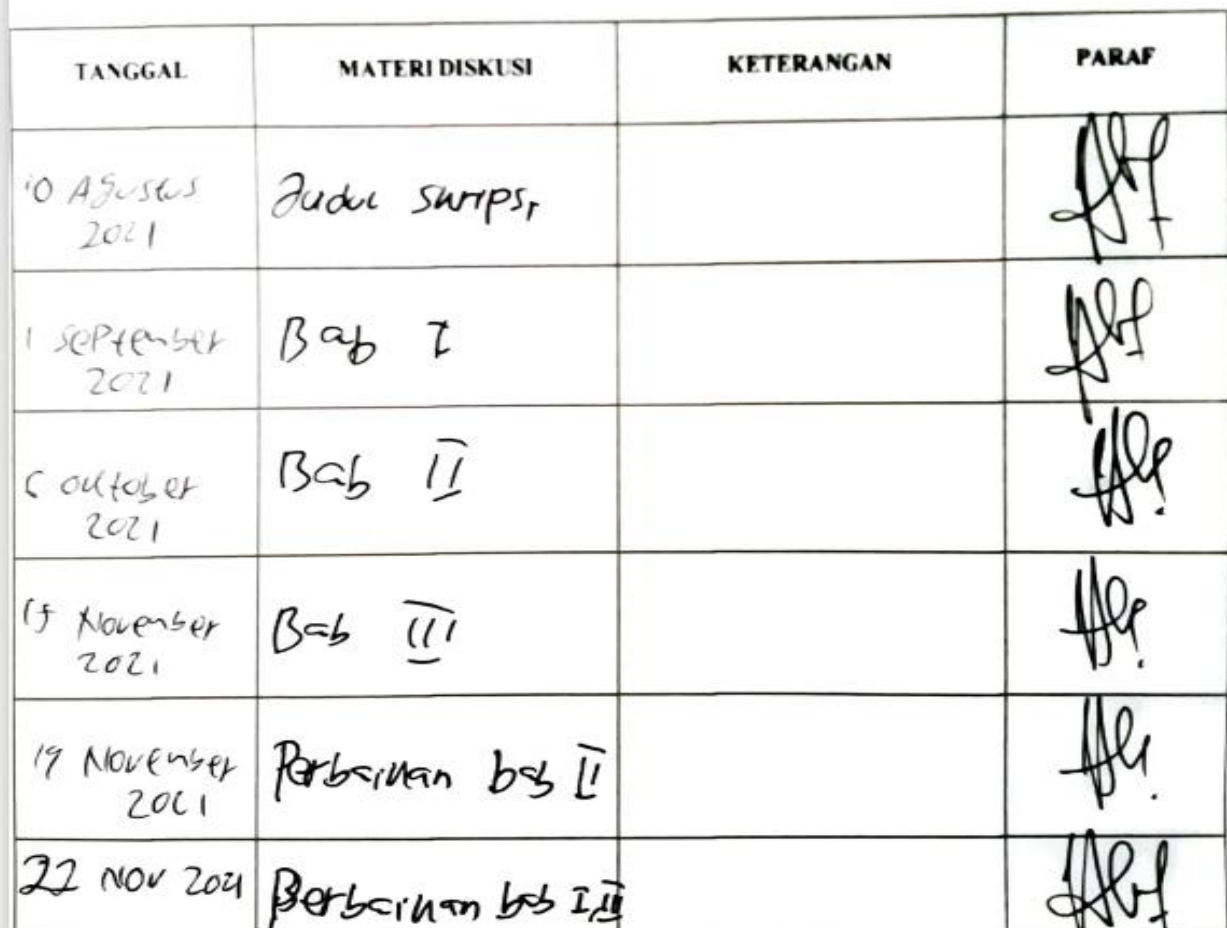 TANGGAL MATERI DISKUSI KETERANGAN PARAF
10 Agustus
2021
Judul skripsi
1 September
2021
Bab I
Oktober
2021
Bab II
November
2021
Bab III
19 November
2021
Perbaikan bab II
22 Nov 2021
Perbaikan bab I,II